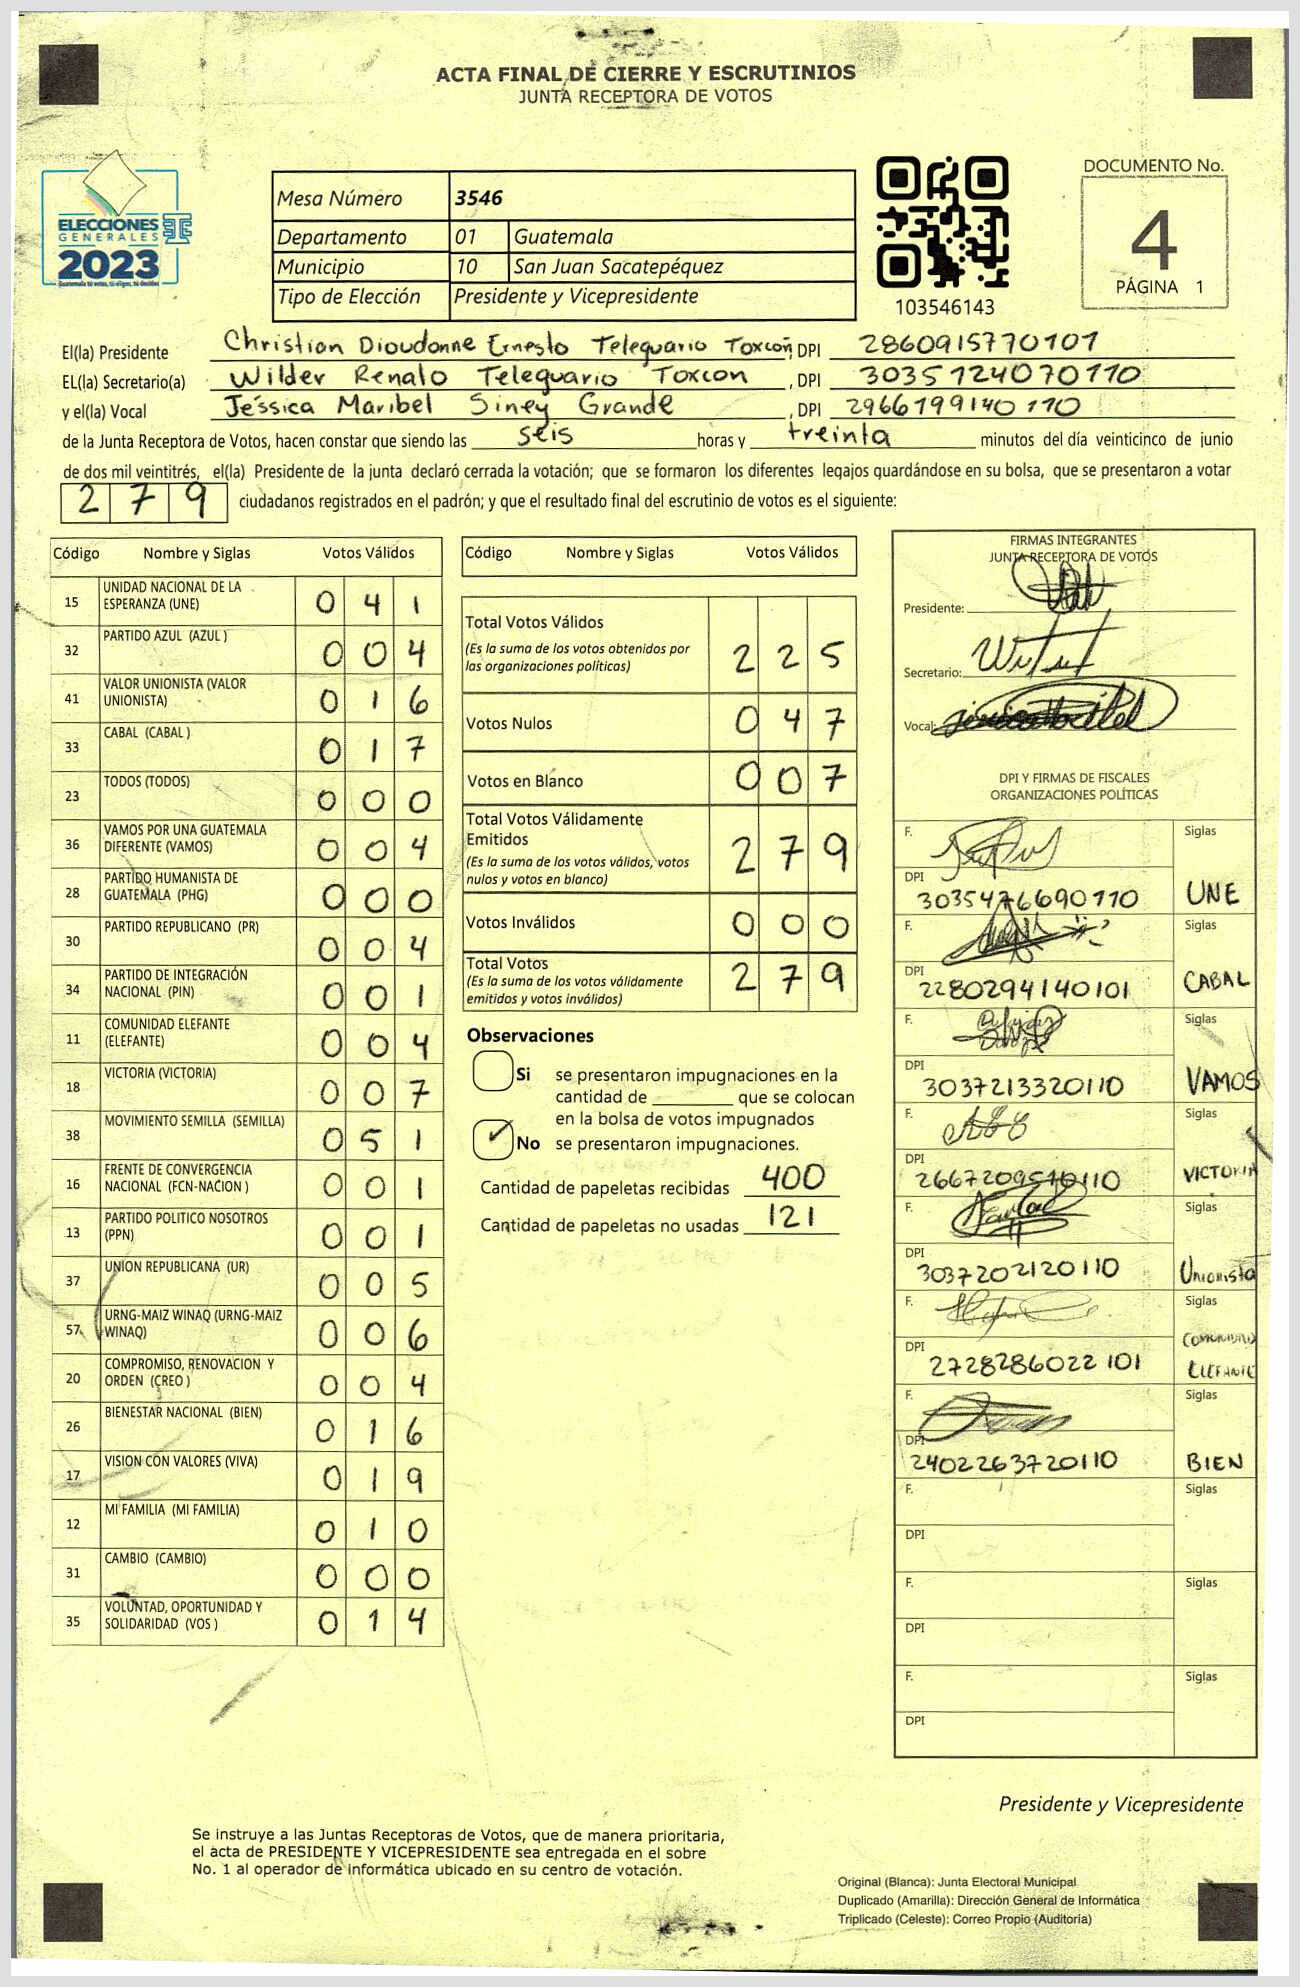 ACTA FINAL DE CIERRE Y ESCRUTINIOS
JUNTA RECEPTORA DE VOTOS
ELECCIONES
GENERALES
2023
Guatemala tú votas, tú eliges, tú decides
Mesa Número 3546
Departamento 01 Guatemala
Municipio 10 San Juan Sacatepéquez
Tipo de Elección Presidente y Vicepresidente
103546143
DOCUMENTO No.
4
PÁGINA 1
El(la) Presidente Christian Dioudonne Ernesto Teleguario Toxcon, DPI 2860915770101
EL(la) Secretario(a) Wilder Renato Teleguario Toxcon, DPI 3035124070110
y el(la) Vocal Jessica Maribel Siney Grande, DPI 2966199140110
de la Junta Receptora de Votos, hacen constar que siendo las seis horas y treinta minutos del día veinticinco de junio
de dos mil veintitrés, el(la) Presidente de la junta declaró cerrada la votación; que se formaron los diferentes legajos guardándose en su bolsa, que se presentaron a votar
279 ciudadanos registrados en el padrón; y que el resultado final del escrutinio de votos es el siguiente:
Código Nombre y Siglas Votos Válidos
15 UNIDAD NACIONAL DE LA ESPERANZA (UNE) 041
32 PARTIDO AZUL (AZUL ) 004
41 VALOR UNIONISTA (VALOR UNIONISTA) 016
33 CABAL (CABAL ) 017
23 TODOS (TODOS) 000
36 VAMOS POR UNA GUATEMALA DIFERENTE (VAMOS) 004
28 PARTIDO HUMANISTA DE GUATEMALA (PHG) 000
30 PARTIDO REPUBLICANO (PR) 004
34 PARTIDO DE INTEGRACIÓN NACIONAL (PIN) 001
11 COMUNIDAD ELEFANTE (ELEFANTE) 004
18 VICTORIA (VICTORIA) 007
38 MOVIMIENTO SEMILLA (SEMILLA) 051
16 FRENTE DE CONVERGENCIA NACIONAL (FCN-NACION ) 001
13 PARTIDO POLITICO NOSOTROS (PPN) 001
37 UNION REPUBLICANA (UR) 005
57 URNG-MAIZ WINAQ (URNG-MAIZ WINAQ) 006
20 COMPROMISO, RENOVACION Y ORDEN (CREO ) 004
26 BIENESTAR NACIONAL (BIEN) 016
17 VISION CON VALORES (VIVA) 019
12 MI FAMILIA (MI FAMILIA) 010
31 CAMBIO (CAMBIO) 000
35 VOLUNTAD, OPORTUNIDAD Y SOLIDARIDAD (VOS ) 014
Código Nombre y Siglas Votos Válidos
Total Votos Válidos 225
(Es la suma de los votos obtenidos por
las organizaciones políticas)
Votos Nulos 047
Votos en Blanco 007
Total Votos Válidamente
Emitidos 279
(Es la suma de los votos válidos, votos
nulos y votos en blanco)
Votos Inválidos 000
Total Votos 279
(Es la suma de los votos válidamente
emitidos y votos inválidos)
Observaciones
Si se presentaron impugnaciones en la
cantidad de ________ que se colocan
en la bolsa de votos impugnados
✓ No se presentaron impugnaciones.
Cantidad de papeletas recibidas 400
Cantidad de papeletas no usadas 121
FIRMAS INTEGRANTES
JUNTA RECEPTORA DE VOTOS
Presidente:
Secretario:
Vocal:
DPI Y FIRMAS DE FISCALES
ORGANIZACIONES POLÍTICAS
F. Siglas
DPI 3035476690110 UNE
F. Siglas
DPI 2280294140101 CABAL
F. Siglas
DPI 3037213320110 VAMOS
F. Siglas
DPI 2667209510110 VICTORIA
F. Siglas
DPI 3037202120110 Unionista
F. Siglas
DPI 2728286022101 COMUNIDAD ELEFANTE
F. Siglas
DPI 2402263720110 BIEN
F. Siglas
DPI
F. Siglas
DPI
F. Siglas
DPI
Presidente y Vicepresidente
Se instruye a las Juntas Receptoras de Votos, que de manera prioritaria,
el acta de PRESIDENTE Y VICEPRESIDENTE sea entregada en el sobre
No. 1 al operador de informática ubicado en su centro de votación.
Original (Blanca): Junta Electoral Municipal
Duplicado (Amarilla): Dirección General de Informática
Triplicado (Celeste): Correo Propio (Auditoría)